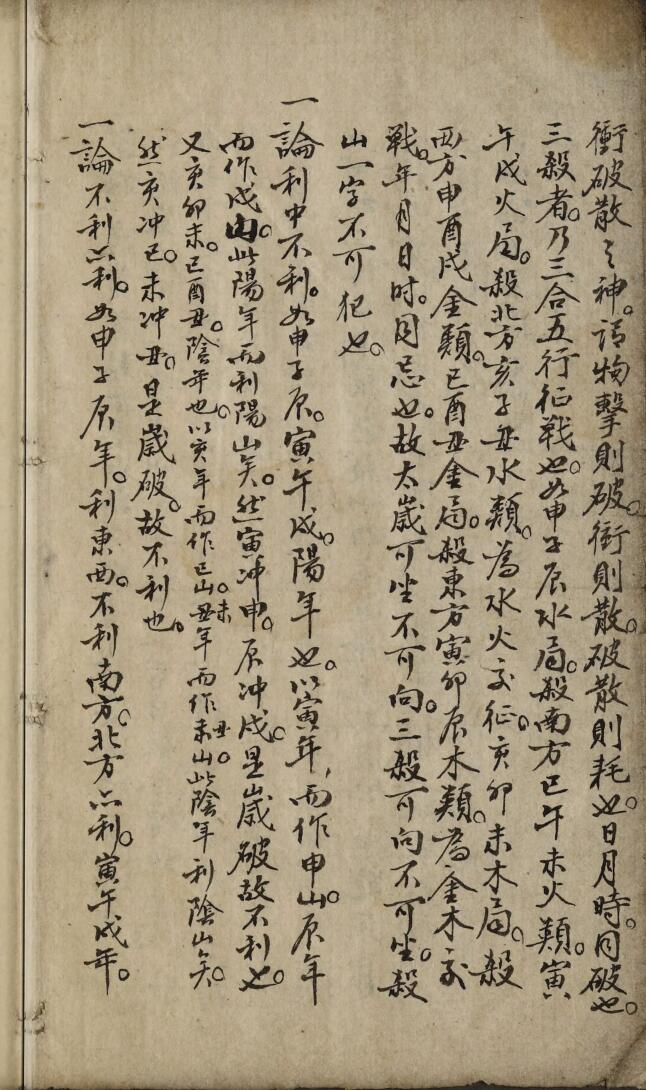 衝破散之神。諸物擊則破。衝則散。破散則耗也。日月時。同破也。
三殺者。乃三合五行征戰也。如申子辰水局。殺南方巳午未火類。寅
午戌火局。殺北方亥子丑水類。為水火交征。亥卯未木局。殺
西方申酉戌金類。巳酉丑金局。殺東方寅卯辰木類。為金木交
戰。年月日時。同忌也。故太歲可坐不可向。三殺可向不可坐。殺
山一字不可犯也。
一論利中不利。如申子辰。寅午戌。陽年也。以寅年，而作申山。辰年
而作戌山。此陽年而利陽山矣。然寅冲申。辰冲戌。是歲破故不利也。
又亥卯未。巳酉丑。陰年也。以亥年而作巳山。未丑年而作丑未山。此陰年利陰山矣。
然亥冲巳。未冲丑。是歲破。故不利也。
一論不利亦利。如申子辰年。利東西。不利南方。北方亦利。寅午戌年。